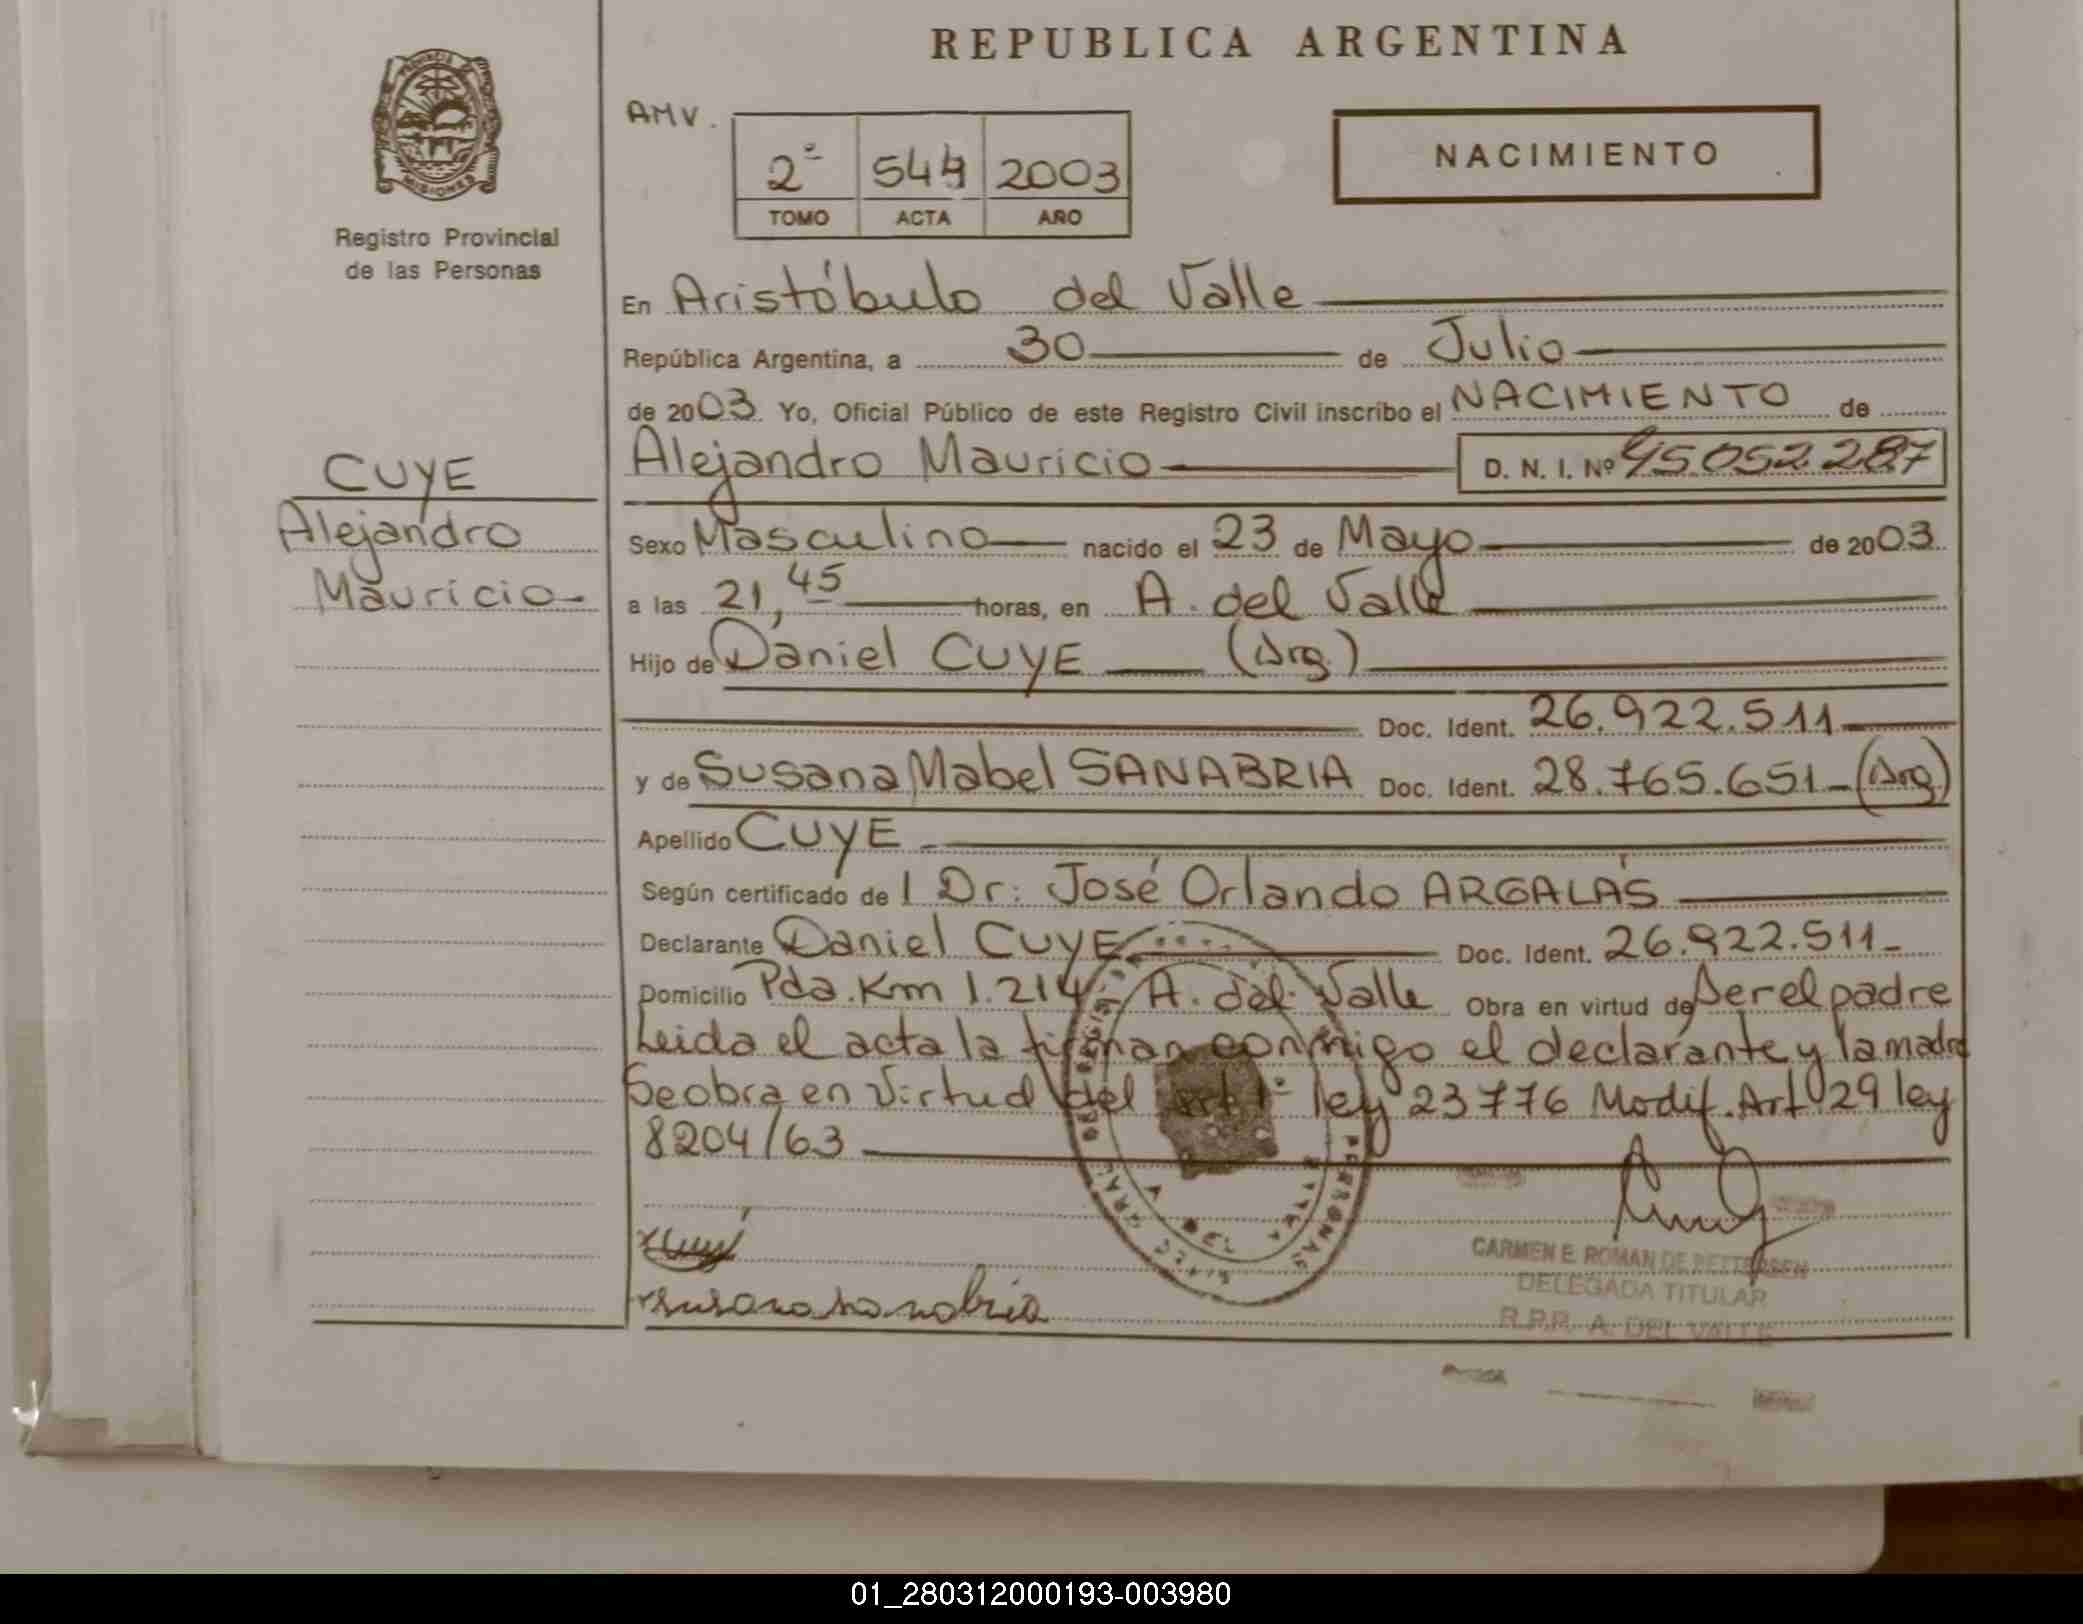 REPUBLICA ARGENTINA
PROVINCIA DE MISIONES
Registro Provincial
de las Personas
AMV.
2º 544 2003
TOMO ACTA AÑO
NACIMIENTO
En Aristóbulo del Valle
República Argentina, a 30 de Julio
de 2003 Yo, Oficial Público de este Registro Civil inscribo el NACIMIENTO de
Alejandro Mauricio D. N. I. Nº 45.052.287
CUYE
Alejandro
Mauricio
Sexo Masculino nacido el 23 de Mayo de 2003
a las 21,45 horas, en A. del Valle
Hijo de Daniel CUYE (Arg.)
Doc. Ident. 26.922.511
y de Susana Mabel SANABRIA Doc. Ident. 28.765.651 (Arg.)
Apellido CUYE
Según certificado de l Dr: José Orlando ARGALÁS
Declarante Daniel CUYE Doc. Ident. 26.922.511
Domicilio Pda. Km 1.214 A. del Valle Obra en virtud de Ser el padre
Leida el acta la firman conmigo el declarante y la madre
Se obra en Virtud del art 1º ley 23776 Modif. Art 29 ley
8204/63
susana sanabria
CARMEN E. ROMAN DE PETTERSEN
DELEGADA TITULAR
R.P.P. A. DEL VALLE
01_280312000193-003980